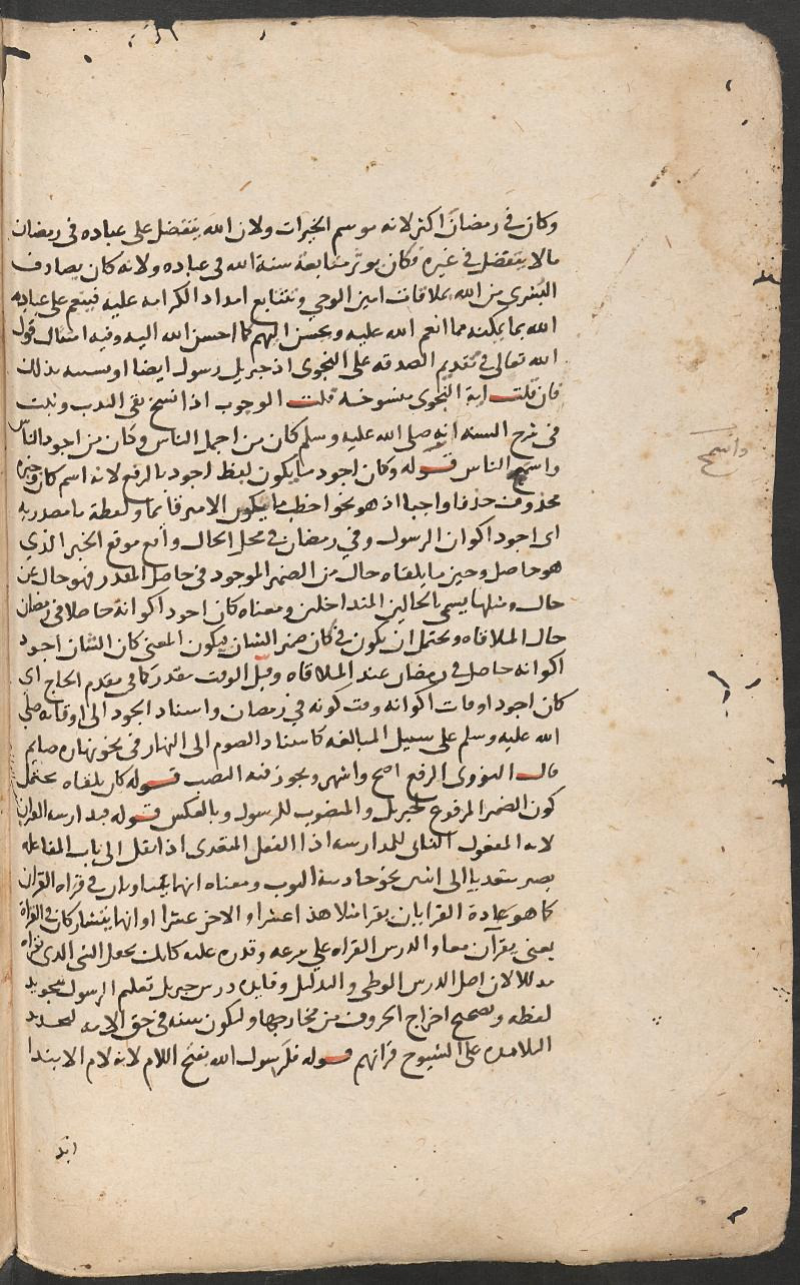 وكان في رمضان اكثر لانه موسم الخيرات ولان الله يتفضل على عباده في رمضان
مالا يتفضل في غيره فكان يوثر متابعة سنة الله في عباده ولانه كان يصادف
البشرى من الله بملاقات امين الوحي وتتابع امداد الكرامه عليه فينعم على عباد
الله بما يمكنه مما انعم الله عليه ويحسن اليهم كما احسن الله اليه وفيه امتثال قول
الله تعالى في تقديم الصدقه على النجوى اذ جبريل رسول ايضا بذلك
فان قلت اية النجوى منسوخه قلت الوجوب اذا نسخ بقى الندب وثبت
في شرح السنه انه صلى الله عليه وسلم كان من اجمل الناس وكان من اجود الناس
واسمح الناس قوله وكان اجود ما يكون لفظ اجود بالرفع لانه اسم كان وخبره
محذوف حذفا واجبا اذ هو نحو اخطب ما يكون الامير قائما ولفظة ما مصدريه
اى اجود اكوان الرسول وفي رمضان في محل الحال واقع موقع الخبر الذي
هو حاصل وحين ما يلقاه حال من الضمير الموجود في حاصل المقدر فهو حال عن
حال ومثلها يسمى بالحالين المتداخلين ومعناه كان اجود اكوانه حاصلا في رمضان
حال الملاقاه ويحتمل ان يكون في كان ضمير الشان فيكون المعنى كان الشان اجود
اكوانه حاصل في رمضان عند الملاقاه وقيل الوقت مقدر كما في مقدم الحاج اى
كان اجود اوقات اكوانه وقت كونه في رمضان واسناد الجود الى اوقاته صلى
الله عليه وسلم على سبيل المبالغه كاسناد الصوم الى النهار في نحو نهاره صايم
قال النووى الرفع اصح واشهر ويجوز فيه النصب قوله كان يلقاه يحتمل
كون الضمير المرفوع لجبريل والمنصوب للرسول وبالعكس قوله فيدارسه القران
لانه المفعول الثانى للمدارسه اذ الفعل المتعدى اذا نقل الى باب المفاعله
يصير متعديا الى اثنين نحو جاذبته الثوب ومعناه انهما يتناوبان في قراة القران
كما هو عادة القرا بان يقرا مثلا هذا عشرا والاخر عشرا او انهما يتشاركان في القراة
يعنى يقرآن معا والدرس القراه على سرعه وقدره عليه كانك تجعل الشى الذى تقراه
مذللا لان اصل الدرس الوطى والتذليل وفايدة درس جبريل تعليم الرسول تجويد
لفظه وتصحيح اخراج الحروف من مخارجها وليكون سنه في حق الامه لتجديد
التلامذه على الشيوخ قراتهم قوله فلرسول الله بفتح اللام لانه لام الابتدا
واسمح